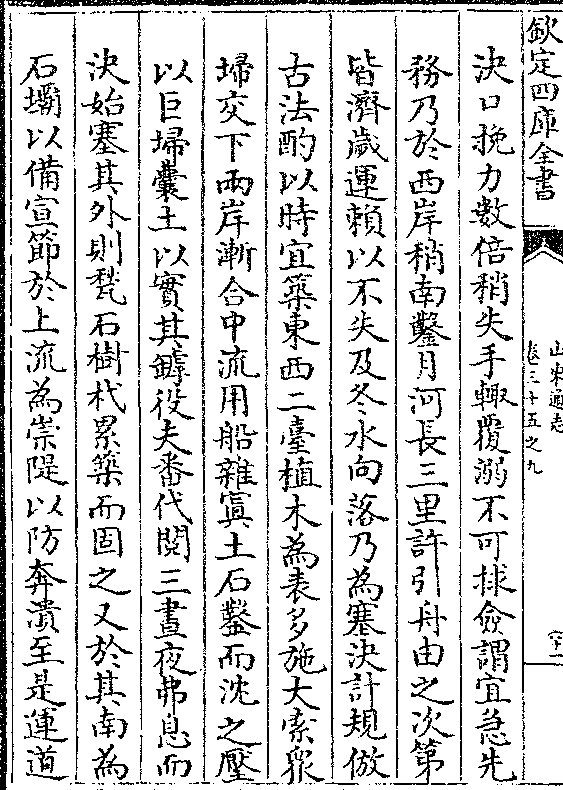 欽定四庫全書
山東通志
卷三十五之九
決口挽力數倍稍失手輒覆溺不可捄僉謂宜急先
務乃於西岸稍南鑿月河長三里許引舟由之次第
皆濟歲運賴以不失及冬水向落乃為塞決計規倣
古法酌以時宜築東西二臺植木為表多施大索眾
埽交下兩岸漸合中流用船雜寘土石鑿而沈之壓
以巨埽囊土以實其罅役夫番代閱三晝夜弗息而
決始塞其外則甃石樹杙累築而固之又於其南為
石壩以備宣節於上流為崇隄以防奔潰至是運道